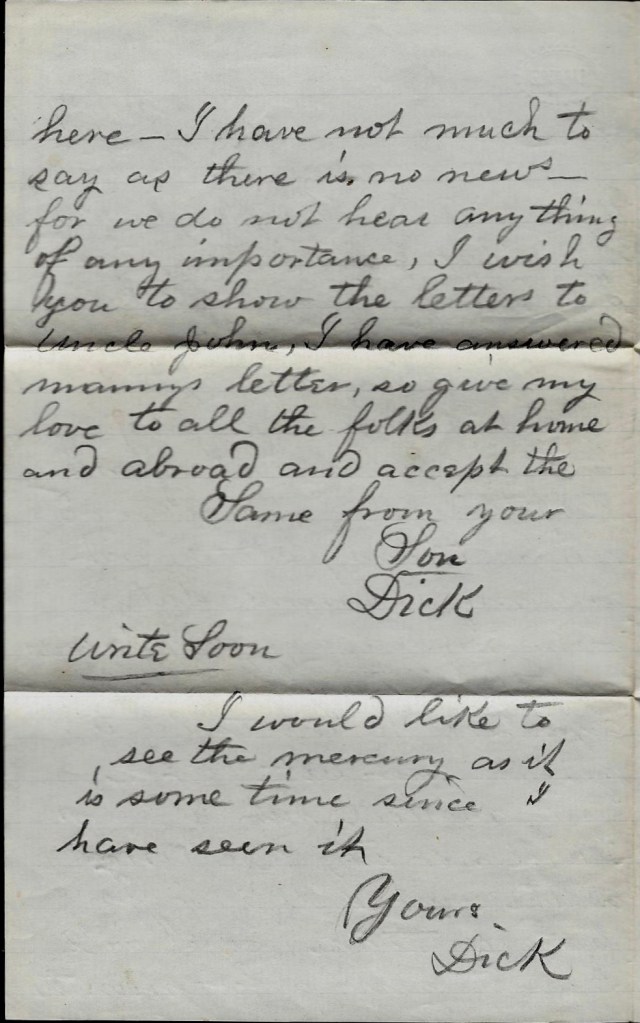 here — I have not much to
say as there is no news —
for we do not hear any thing
of any importance, I wish
you to show the letters to
Uncle John, I have answered
mannys letter, so give my
love to all the folks at home
and abroad and accept the
Same from your
Son
Dick
Write Soon
I would like to
see the mercury as it
is some time since I
have seen it
Yours
Dick